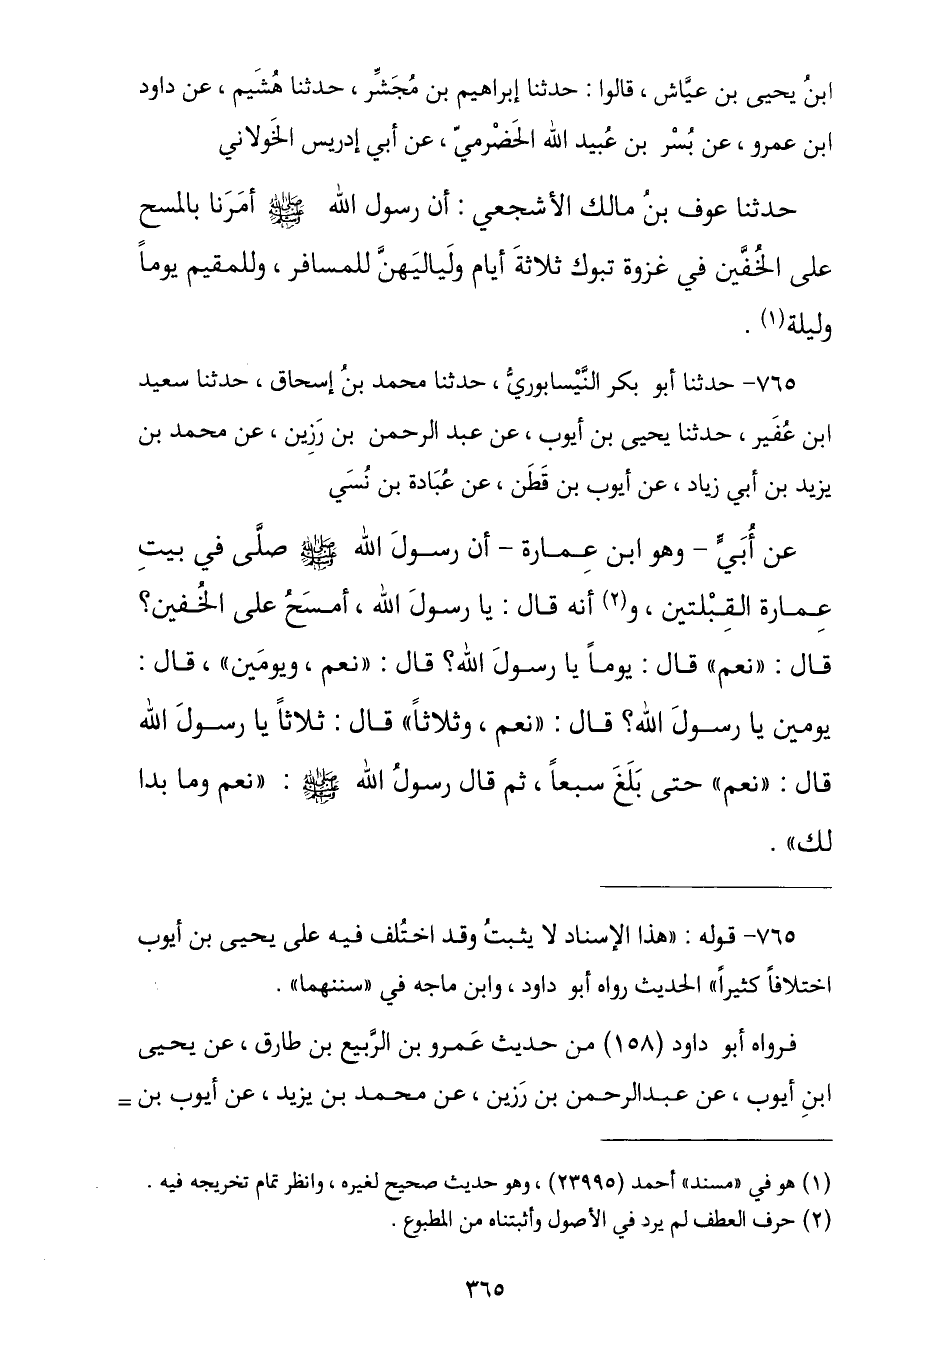 ابنُ يحيى بن عيَّاش ، قالوا : حدثنا إبراهيم بن مُجَشِّر ، حدثنا هُشَيم ، عن داود
ابن عمرو ، عن بُسْر بن عُبيد الله الحَضْرميّ ، عن أبي إدريس الخَولاني
حدثنا عوف بنُ مالك الأشجعي : أن رسول الله ﷺ أمَرَنا بالمسح
على الخُفَّين في غزوة تبوك ثلاثةَ أيام ولَياليَهنَّ للمسافر ، وللمقيم يوماً
وليلة(١) .
٧٦٥- حدثنا أبو بكر النَّيْسابوريُّ ، حدثنا محمد بنُ إسحاق ، حدثنا سعيد
ابن عُفَير ، حدثنا يحيى بن أيوب ، عن عبد الرحمن بن رَزِين ، عن محمد بن
يزيد بن أبي زياد ، عن أيوب بن قَطَن ، عن عُبَادة بن نُسَي
عن أُبَيٍّ - وهو ابن عِمارة - أن رسولَ الله ﷺ صلَّى في بيتِ
عِمارة القِبْلتين ، و(٢) أنه قال : يا رسولَ الله ، أمسَحُ على الخُفين؟
قال : «نعم» قال : يوماً يا رسولَ الله؟ قال : «نعم ، ويومَين» ، قال :
يومين يا رسولَ الله؟ قال : «نعم ، وثلاثاً» قال : ثلاثاً يا رسولَ الله
قال : «نعم» حتى بَلَغَ سبعاً ، ثم قال رسولُ الله ﷺ : «نعم وما بدا
لك» .
٧٦٥- قوله : «هذا الإسناد لا يثبتُ وقد اختُلف فيه على يحيى بن أيوب
اختلافاً كثيراً» الحديث رواه أبو داود ، وابن ماجه في «سننهما» .
فرواه أبو داود (١٥٨) من حديث عَمرو بن الرَّبيع بن طارق ، عن يحيى
ابنِ أيوب ، عن عبدالرحمن بن رَزين ، عن محمد بن يزيد ، عن أيوب بن =
(١) هو في «مسند» أحمد (٢٣٩٩٥) ، وهو حديث صحيح لغيره ، وانظر تمام تخريجه فيه .
(٢) حرف العطف لم يرد في الأصول وأثبتناه من المطبوع .
٣٦٥